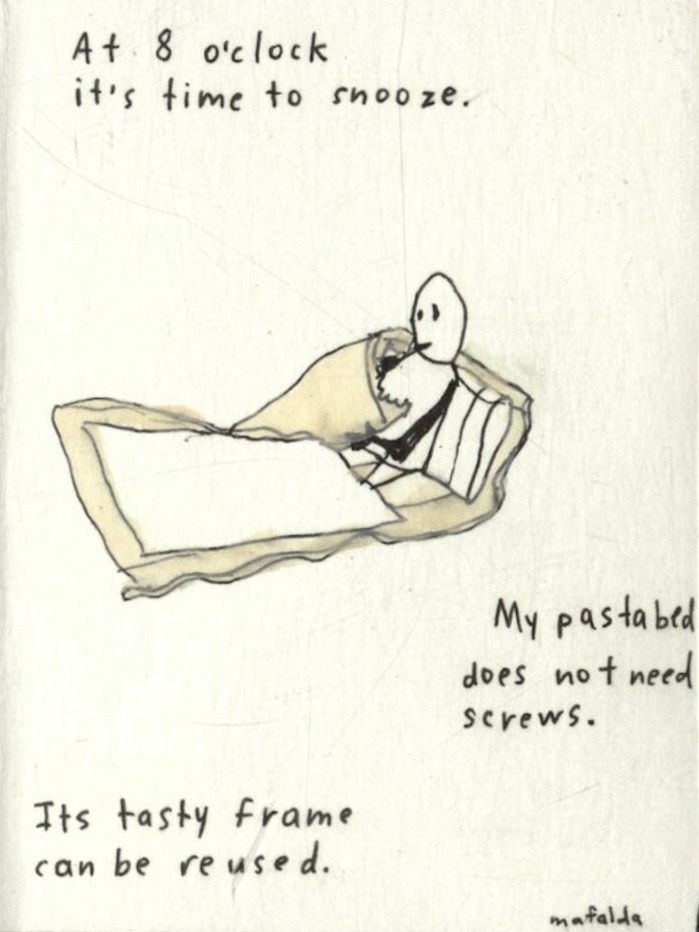 At 8 o'clock
it's time to snooze.
My pastabed
does not need
screws.
Its tasty frame
can be reused.
mafalda